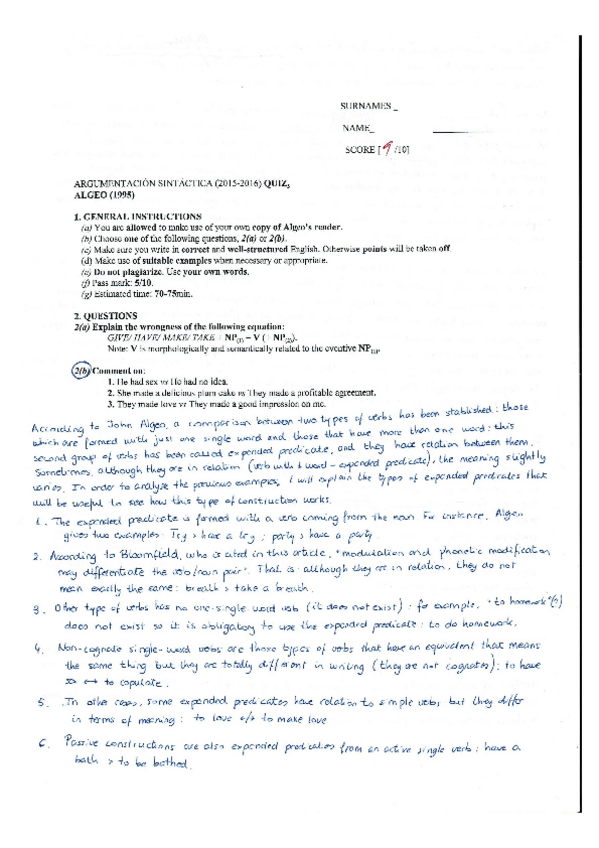 SURNAMES _
NAME_
SCORE [ 9 /10]
ARGUMENTACIÓN SINTÁCTICA (2015-2016) QUIZ,
ALGEO (1995)
1. GENERAL INSTRUCTIONS
(a) You are allowed to make use of your own copy of Algeo's reader.
(b) Choose one of the following questions, 2(a) or 2(b).
(c) Make sure you write in correct and well-structured English. Otherwise points will be taken off.
(d) Make use of suitable examples when necessary or appropriate.
(e) Do not plagiarize. Use your own words.
(f) Pass mark: 5/10.
(g) Estimated time: 70-75min.
2. QUESTIONS
2(a) Explain the wrongness of the following equation:
GIVE/ HAVE/ MAKE/ TAKE + NP(1) = V (+ NP(2)).
Note: V is morphologically and semantically related to the eventive NP(1).
2(b) Comment on:
1. He had sex vs He had no idea.
2. She made a delicious plum cake vs They made a profitable agreement.
3. They made love vs They made a good impression on me.
According to John Algeo, a comparison between two types of verbs has been stablished: those
which are formed with just one single word and those that have more than one word: this
second group of verbs has been called expanded predicate, and they have relation between them.
Sometimes, although they are in relation (verb with 1 word - expanded predicate), the meaning slightly
varies. In order to analyse the previous examples, I will explain the types of expanded predicates that
will be useful to see how this type of construction works.
1. The expanded predicate is formed with a verb coming from the noun. For instance, Algeo
gives two examples: Try > have a try; party > have a party.
2. According to Bloomfield, who is cited in this article, "modulation and phonetic modification
may differentiate the verb/noun pair". That is: although they are in relation, they do not
mean exactly the same: breath > take a breath.
3. Other type of verbs has no one-single word verb (it does not exist): for example, "to homework"(?)
does not exist so it is obligatory to use the expanded predicate: to do homework.
4. Non-cognate single-word verbs are those types of verbs that have an equivalent that means
the same thing but they are totally different in writing (they are not cognates): to have
sex ↔ to copulate.
5. In other cases, some expanded predicates have relation to simple verbs but they differ
in terms of meaning: to love to make love
6. Passive constructions are also expanded predicates from an active single verb: have a
bath > to be bathed.